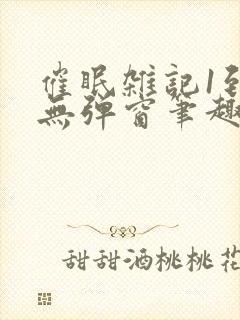 催眠雑記1到
無弹窗筆趣
甜甜酒桃桃花